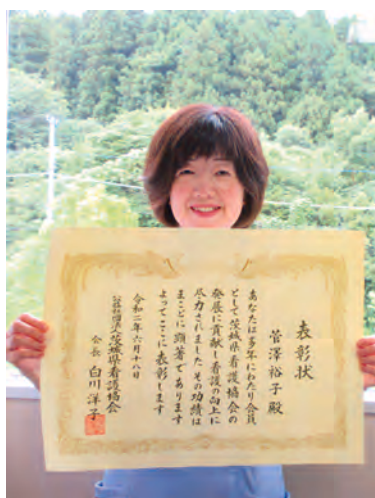 表彰状
菅澤裕子殿
あなたは多年にわたり会員
として茨城県看護協会の
発展に貢献し看護の向上に
尽力されました その功績は
まことに顕著であります
よってここに表彰します
令和二年六月十八日
公益社団法人茨城県看護協会
会長 白川洋子